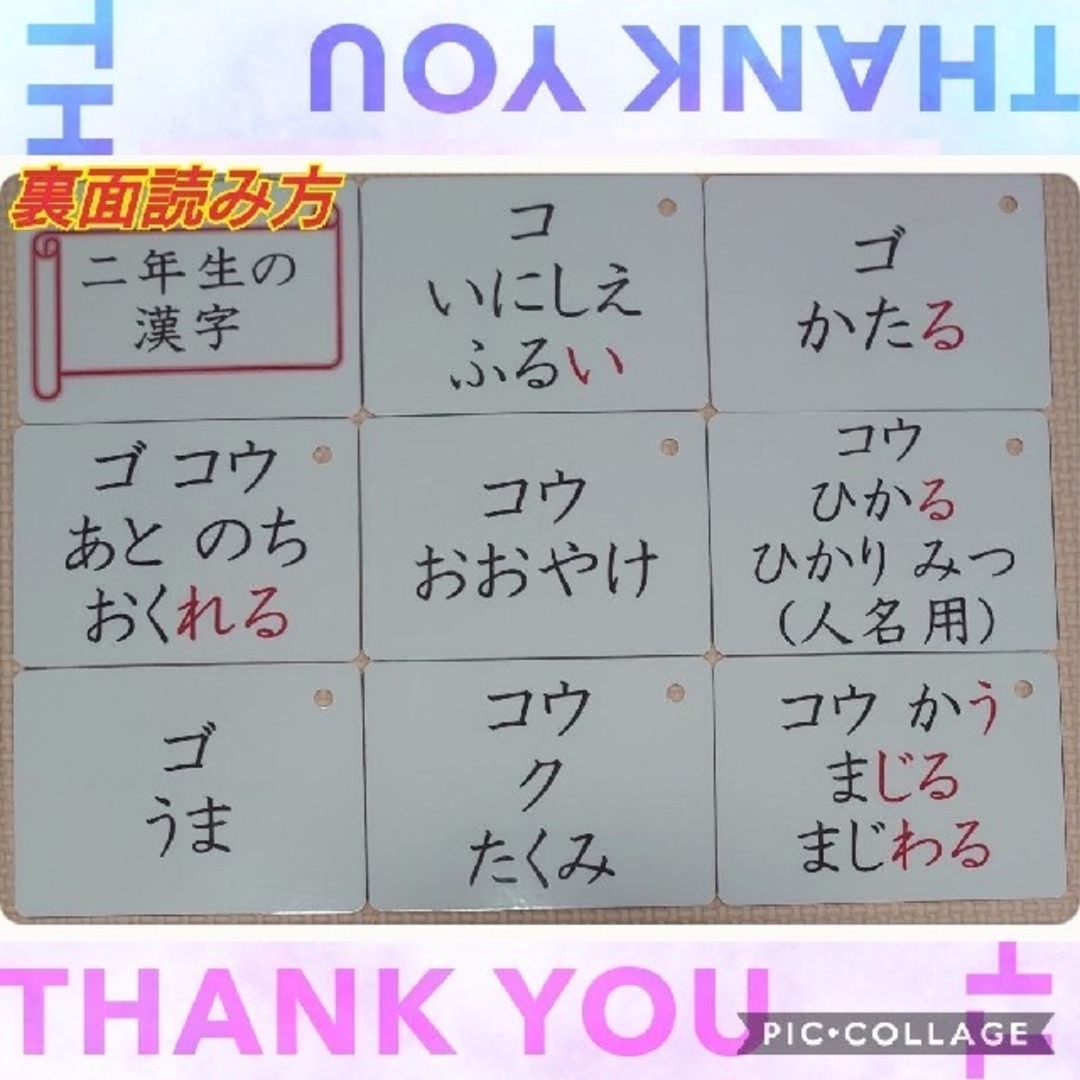 THANK YOU
TH
裏面読み方
二年生の
漢字
コ
いにしえ
ふるい
ゴ
かたる
ゴ コウ
あと のち
おくれる
コウ
おおやけ
コウ
ひかる
ひかり みつ
(人名用)
ゴ
うま
コウ
ク
たくみ
コウ かう
まじる
まじわる
THANK YOU
PIC•COLLAGE